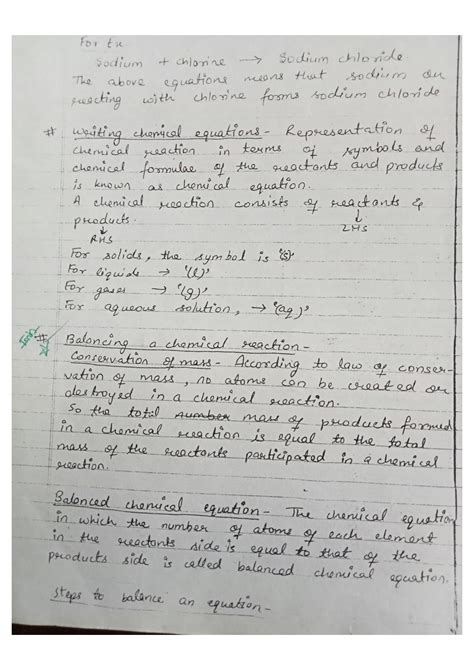 For Ex
Sodium + chlorine → Sodium chloride
The above equations means that sodium on
reacting with chlorine forms sodium chloride
# Writing chemical equations - Representation of
chemical reaction in terms of symbols and
chemical formulae of the reactants and products
is known as chemical equation.
A chemical reaction consists of reactants &
products. ↓
↓ LHS
RHS
For solids, the symbol is '(s)'
For liquids → '(l)'
For gases → '(g)'
For aqueous solution, → '(aq)'
# Balancing a chemical reaction -
Conservation of mass - According to law of conser-
vation of mass, no atoms can be created or
destroyed in a chemical reaction.
So the total number mass of products formed
in a chemical reaction is equal to the total
mass of the reactants participated in a chemical
reaction.
Balanced chemical equation - The chemical equation
in which the number of atoms of each element
in the reactants side is equal to that of the
products side is called balanced chemical equation.
Steps to balance an equation -